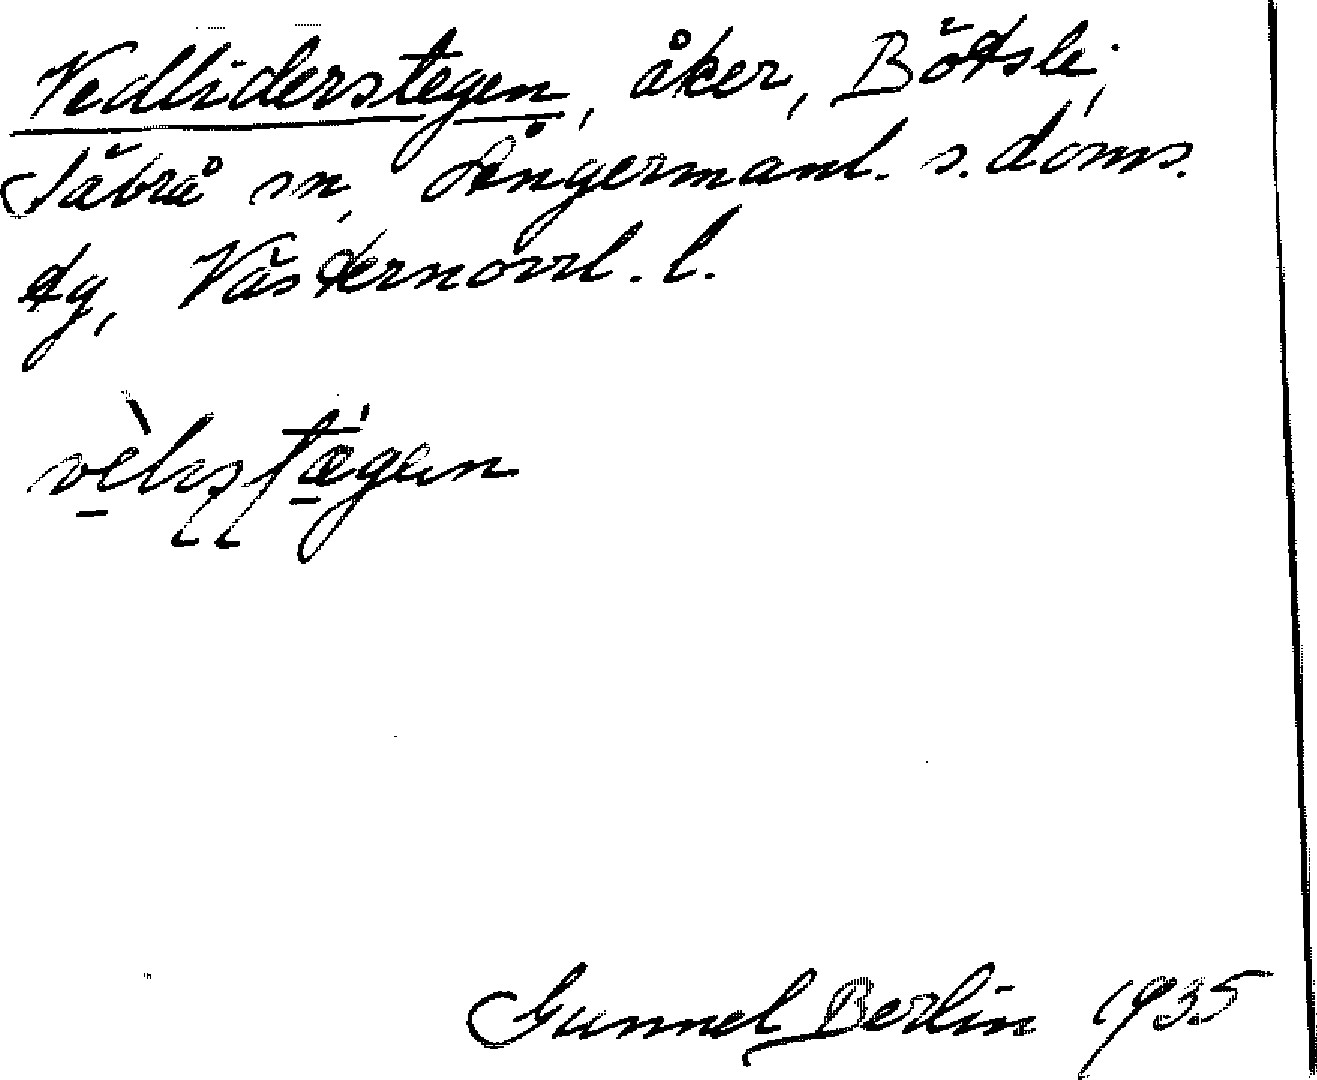 Vedliderstegen, åker, Bötsle,
Säbrå sn, Ångermanl. s. doms.
tg, Västernorrl. l.
Gunnel Berlin 1935